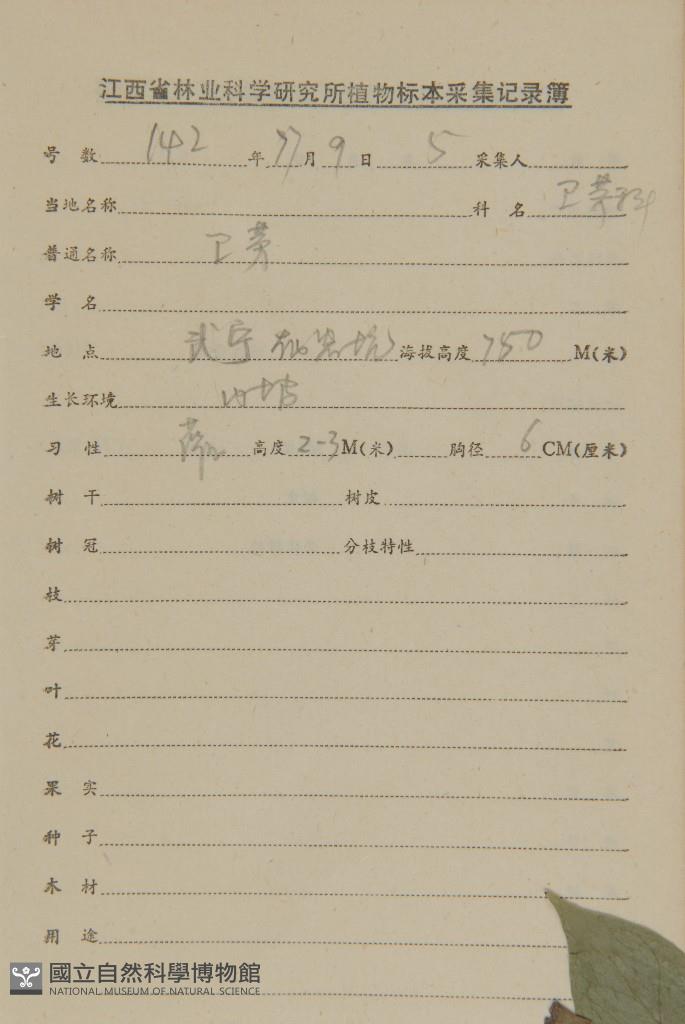 江西省林业科学研究所植物标本采集记录簿
号 数 142 年 77 月 9 日 5 采集人
当地名称 科 名 卫茅科
普通名称 卫茅
学 名
地 点 武宁 坑 海拔高度 750 M(米)
生长环境 山坡
习 性 高度 2-3 M(米) 胸径 6 CM(厘米)
树 干 树皮
树 冠 分枝特性
枝
芽
叶
花
果 实
种 子
木 材
用 途
國立自然科學博物館
NATIONAL MUSEUM OF NATURAL SCIENCE